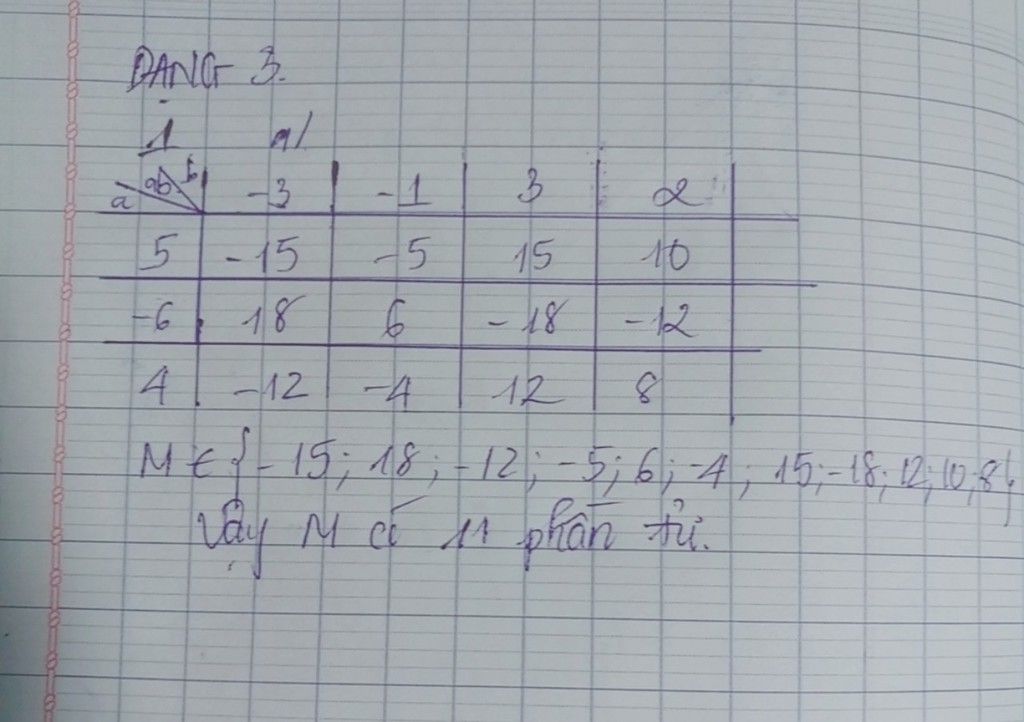 DẠNG 3.
1 a/
a ab b -3 -1 3 2
5 -15 -5 15 10
-6 18 6 -18 -12
4 -12 -4 12 8
M ∈ {-15; 18; -12; -5; 6; -4; 15; -18; 12; 10; 8}
Vậy M có 11 phần tử.